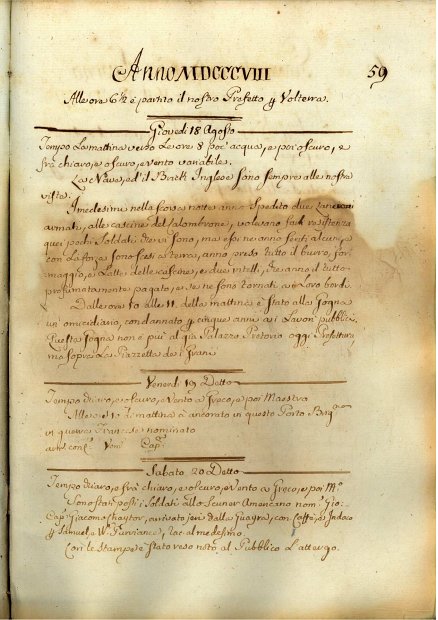 Anno MDCCCVIII 59
Alle ore 6½ è partito il nostro Prefetto p Volterra.
Giovedì 18 Agosto
Tempo La mattina verso Le ore 8 po' acqua, e poi oscuro, e
frà chiaro, e oscuro, e vento variabile.
La Nave, ed il Brick Inglese sono sempre alla nostra
vista.
I medesimi nella scorsa notte anno spedito due
armati, alle cascine del Calombrone, volevano fare resistenza
quei pochi Soldati che vi sono, ma essi ne anno feriti alcuni, e
con La sono scesi a terra, anno preso tutto il burro, for
maggio, e Latte delle cascine, e due vitelli, che anno il tutto
profumatamente pagato, e se ne sono tornati a Loro bordi.
Dalle ore 10 alle 11 della mattina è stato alla Gogna
un omicidiario, condannato p cinque anni ai Lavori pubblici.
Questa Gogna non è più al già Palazzo Pretorio oggi Prefettura
ma sopra La Piazzetta dei Grani
Venerdì 19 Detto
Tempo chiaro, e oscuro, e vento a Greco, e poi Maestro
Alle ore di mattina è ancorato in questo Porto Brig.no
in guerra Francese nominato
Cap.
Sabato 20 Detto
Tempo chiaro, e frà chiaro, e oscuro, e vento a Greco, e poi M.o
Sono stati posti i Soldati allo Scuner Americano nom.
Cap. Giacomo Chaytor, arrivato jeri dalla Guayra, con Caffè, e Indaco
p Samuel, e W. Purviance, rac. al medesimo.
Con Le Stampe è stato reso noto al Pubblico L'attergo.